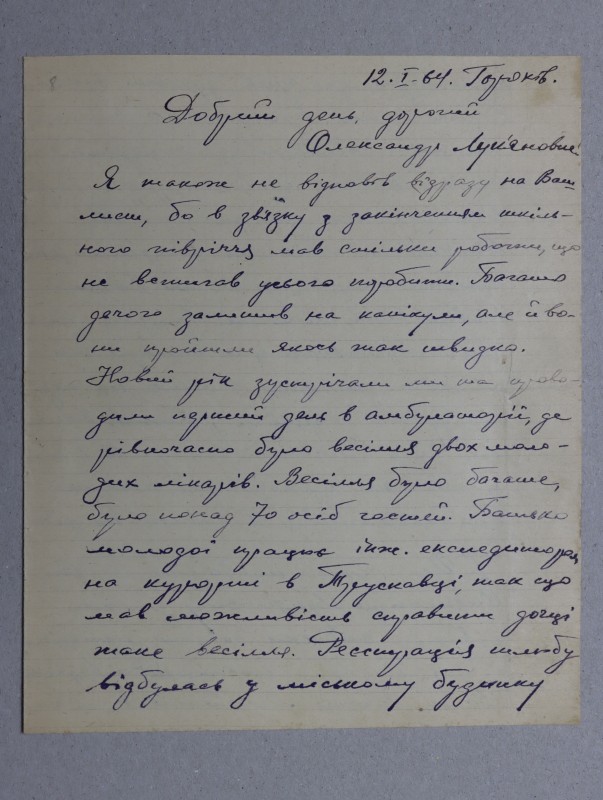 8
12. I. 64.
Добрий день, дорогий
Олександр Лук'янович!
Я також не відповів відразу на Ваш
лист, бо в зв'язку з закінченням шкіль-
ного півріччя мав стільки роботи, що
не встигав усього поробити. Багато
дечого залишив на канікули, але й во-
ни пройшли якось так швидко.
Новий рік зустрічали ми та прово-
дили перший день в амбулаторії, де
рівночасно було весілля двох моло-
дих лікарів. Весілля було багате,
було понад 70 осіб гостей. Батько
молодої працює інж. експедитором
на курорті в Трускавці, так що
мав можливість справити дочці
таке весілля. Реєстрація шлюбу
відбулась у міському будинку